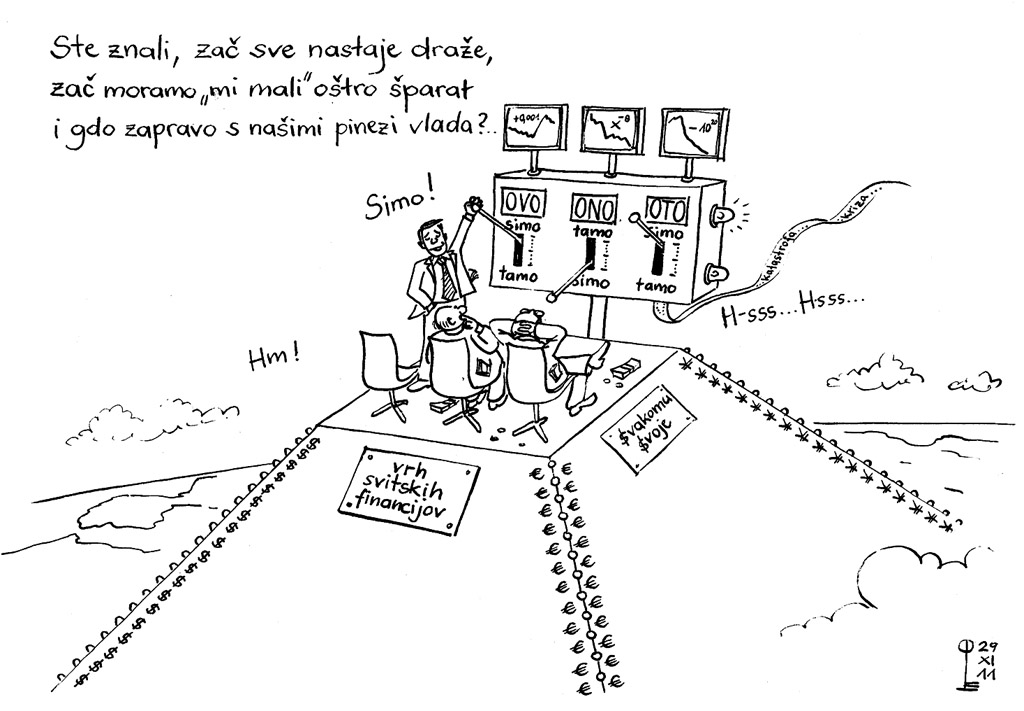 Ste znali, zač sve nastaje draže,
zač moramo „mi mali“ oštro šparat
i gdo zapravo s našimi pinezi vlada?..
+0,001
x⁻⁸
-10²⁰
Simo!
OVO
ONO
OTO
simo
tamo
simo
tamo
simo
tamo
Katastrofa...
Kriza...
H-sss...H-sss...
Hm!
$vakomu
$voje
vrh
svitskih
financijov
29
XI
11